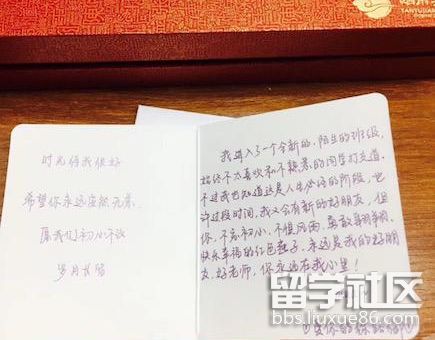 时光待我很好
希望你永远安然无恙.
愿我们初心不改
岁月长留
我进入了一个全新的,陌生的班级,
始终不太喜欢和不熟悉的同学打交道.
不过我也知道这是人生必经的阶段,也
许过段时间,我又会有新的好朋友,但
你,不忘初心,不惧风雨,勇敢
快乐幸福的红色燕子,永远是我的好朋
友,好老师,你永远在我心里!
爱你的
TANYUJIAN
留学社区
bbs.liuxue86.com